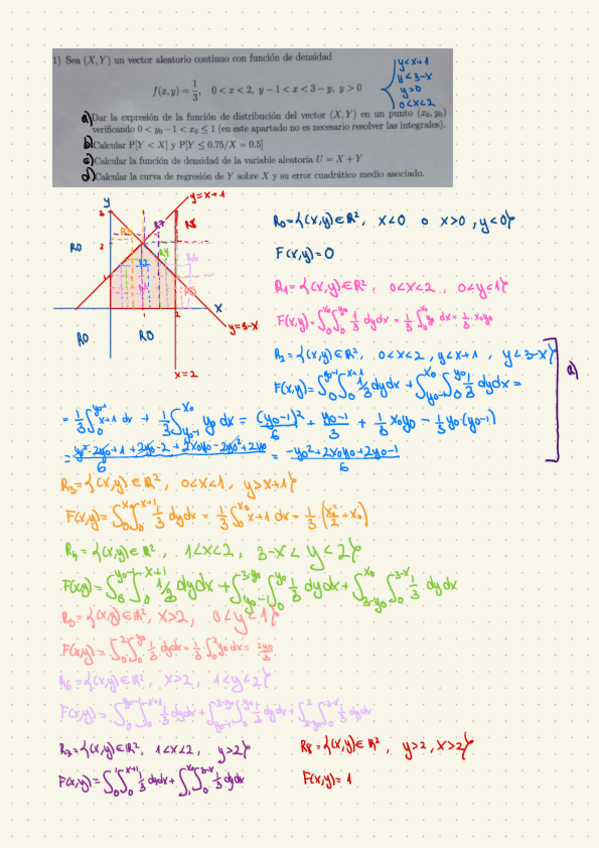 1) Sea (X,Y) un vector aleatorio continuo con función de densidad
f(x,y) = 1/3, 0 < x < 2, y − 1 < x < 3 − y, y > 0
y<x+1
y<3-x
y>0
0<x<2
a) Dar la expresión de la función de distribución del vector (X,Y) en un punto (x0,y0)
verificando 0 < y0 − 1 < x0 ≤ 1 (en este apartado no es necesario resolver las integrales).
b) Calcular P[Y < X] y P[Y ≤ 0.75/X = 0.5]
c) Calcular la función de densidad de la variable aleatoria U = X + Y
d) Calcular la curva de regresión de Y sobre X y su error cuadrático medio asociado.
y
y=x+1
3
R7
R8
R0
2
R4
R6
1
2
x
y=3-x
R0
R0
x=2
R0={(x,y)∈ℝ², x<0 o x>0, y<0}
F(x,y)=0
R1={(x,y)∈ℝ², 0<x<2, 0<y<1}
F(x,y)=∫0^x0 ∫0^y0 1/3 dydx = 1/3 ∫0^x0 y0 dx = 1/3 · x0y0
R2={(x,y)∈ℝ², 0<x<2, y<x+1, y<3-x}
F(x,y)=∫0^y0-1 ∫0^x+1 1/3 dydx + ∫y0-1^x0 ∫0^y0 1/3 dydx =
a)
= 1/3 ∫0^y0-1 x+1 dx + 1/3 ∫y0-1^x0 y0 dx = (y0-1)²/6 + y0-1/3 + 1/3 x0y0 - 1/3 y0·(y0-1)
= y0²-2y0+1+2y0-2+2x0y0-2y0²+2y0/6 = -y0²+2x0y0+2y0-1/6
R3={(x,y)∈ℝ², 0<x<1, y>x+1}
F(x,y)=∫0^x0 ∫0^x+1 1/3 dydx = 1/3 ∫0^x0 x+1 dx = 1/3·(x0²/2+x0)
R4={(x,y)∈ℝ², 1<x<2, 3-x<y<2}
F(x,y)=∫0^y0-1 ∫0^x+1 1/3 dydx + ∫y0-1^3-y0 ∫0^y0 1/3 dydx + ∫3-y0^x0 ∫0^3-x 1/3 dydx
R5={(x,y)∈ℝ², x>2, 0<y<1}
F(x,y)=∫0^2 ∫0^y0 1/3 dydx = 1/3 ∫0^2 y0 dx = 2y0/3
R6={(x,y)∈ℝ², x>2, 1<y<2}
F(x,y)=∫0^y0-1 ∫0^x+1 1/3 dydx + ∫y0-1^3-y0 ∫0^y0 1/3 dydx + ∫3-y0^2 ∫0^3-x 1/3 dydx
R7={(x,y)∈ℝ², 1<x<2, y>2}
F(x,y)=∫0^1 ∫0^x+1 1/3 dydx + ∫1^x0 ∫0^3-x 1/3 dydx
R8={(x,y)∈ℝ², y>2, x>2}
F(x,y)=1